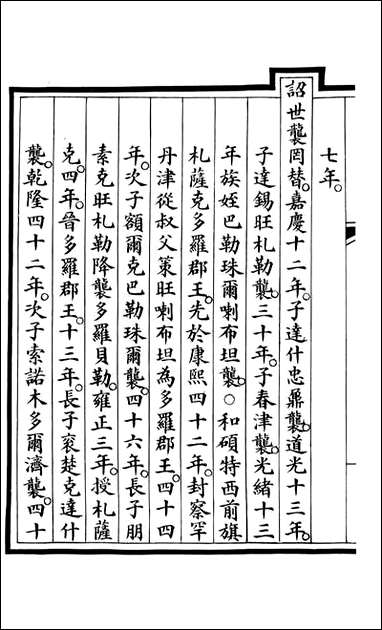 七年。
詔世襲罔替。嘉慶十二年。子達什忠鼐襲。道光十三年。
子達錫旺札勒襲。三十年。子春津襲。光緒十三
年族姪巴勒珠爾喇布坦襲。○和碩特西前旗
札薩克多羅郡王。先於康熙四十二年。封察罕
丹津從叔父策旺喇布坦為多羅郡王。四十四
年。次子額爾克巴勒珠爾襲。四十六年。長子朋
素克旺札勒降襲多羅貝勒。雍正三年。授札薩
克。四年。晉多羅郡王。十三年。長子袞楚克達什
襲。乾隆四十二年。次子索諾木多爾濟襲。四十